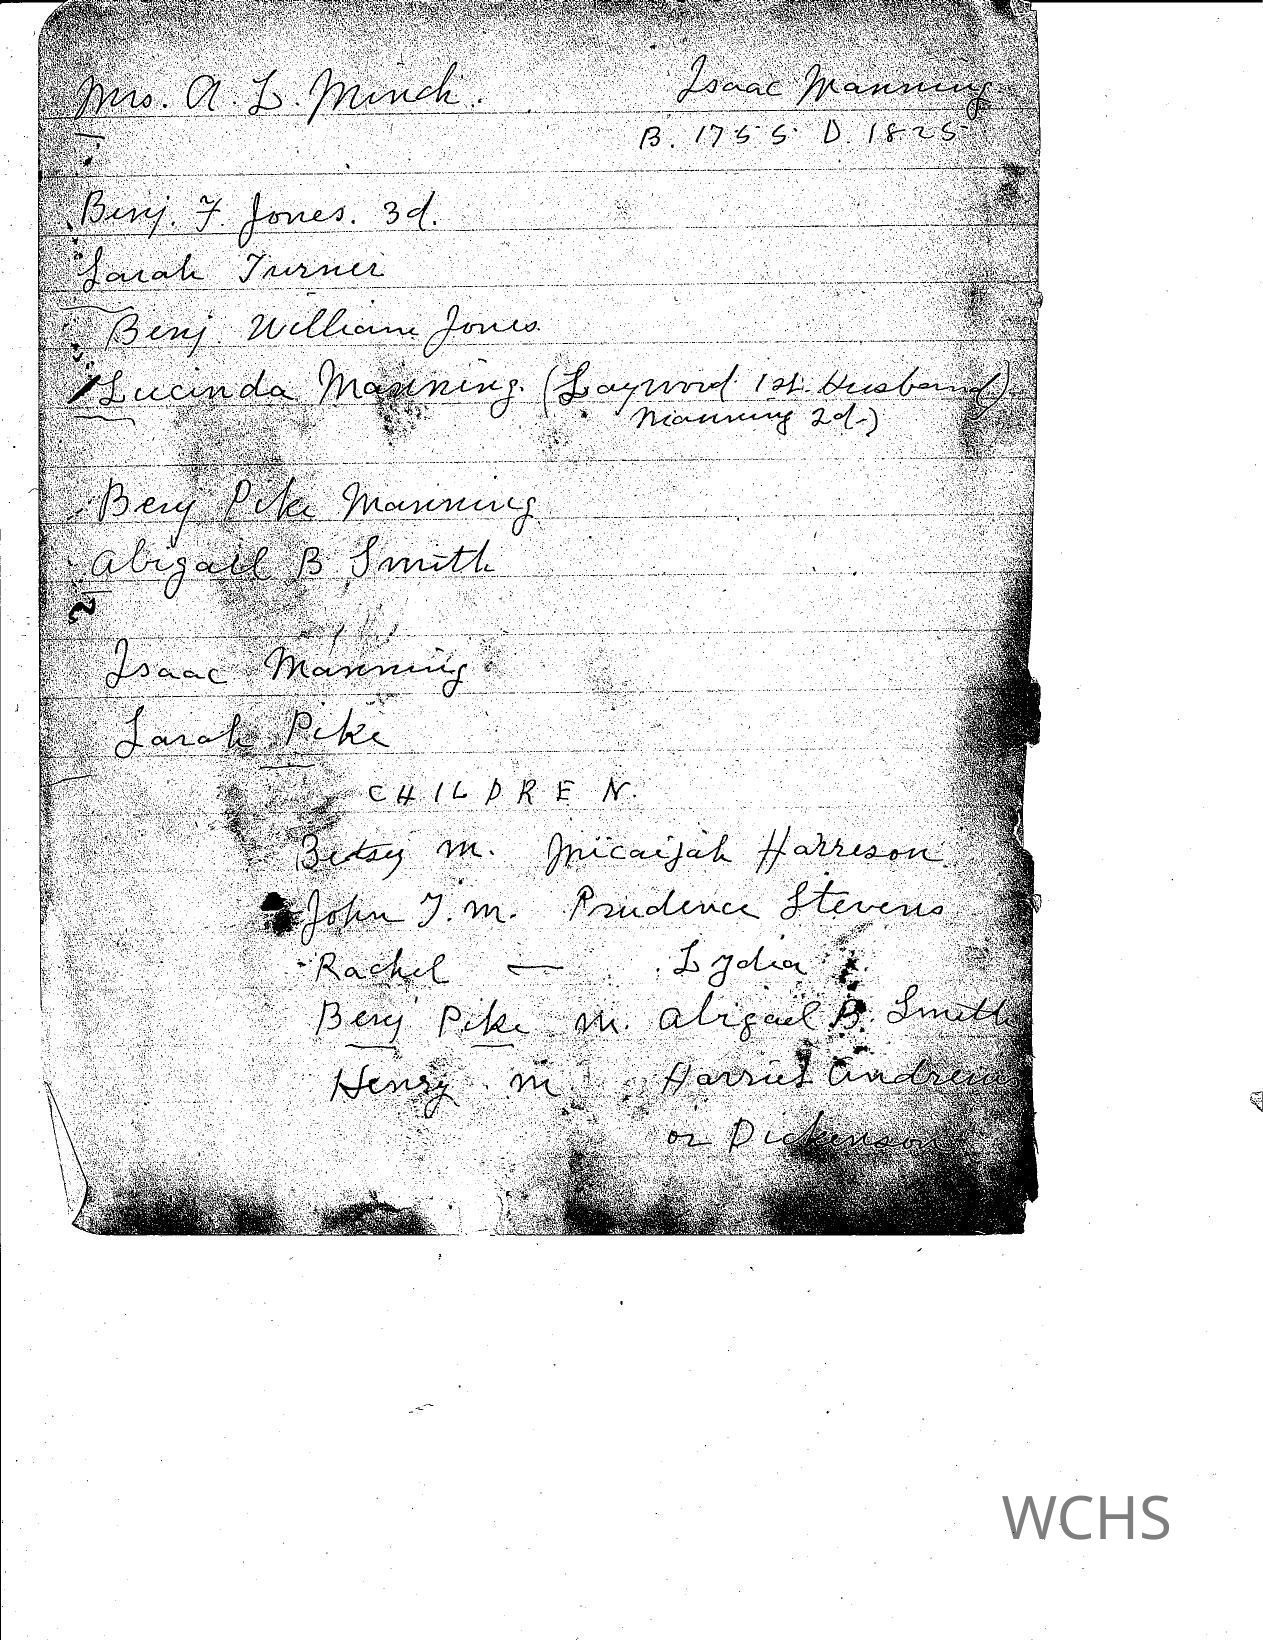 Mrs. A. L. Minch. Isaac Manning
B. 1755 D. 1825
Benj. F. Jones. 3d.
Sarah Turner
Benj. William Jones.
Lucinda Manning. (Laywood 1st. Husband)
Manning 2d.)
Benj Pike Manning
Abigail B Smith
2
Isaac Manning
Sarah Pike
CHILDREN.
Betsy m. Micaijah Harreson
John T. m. Prudence Stevens
Rachel — Lydia
Benj Pike m. Abigael B. Smith
Henry m Harriet Andrews
or Dickenson
WCHS